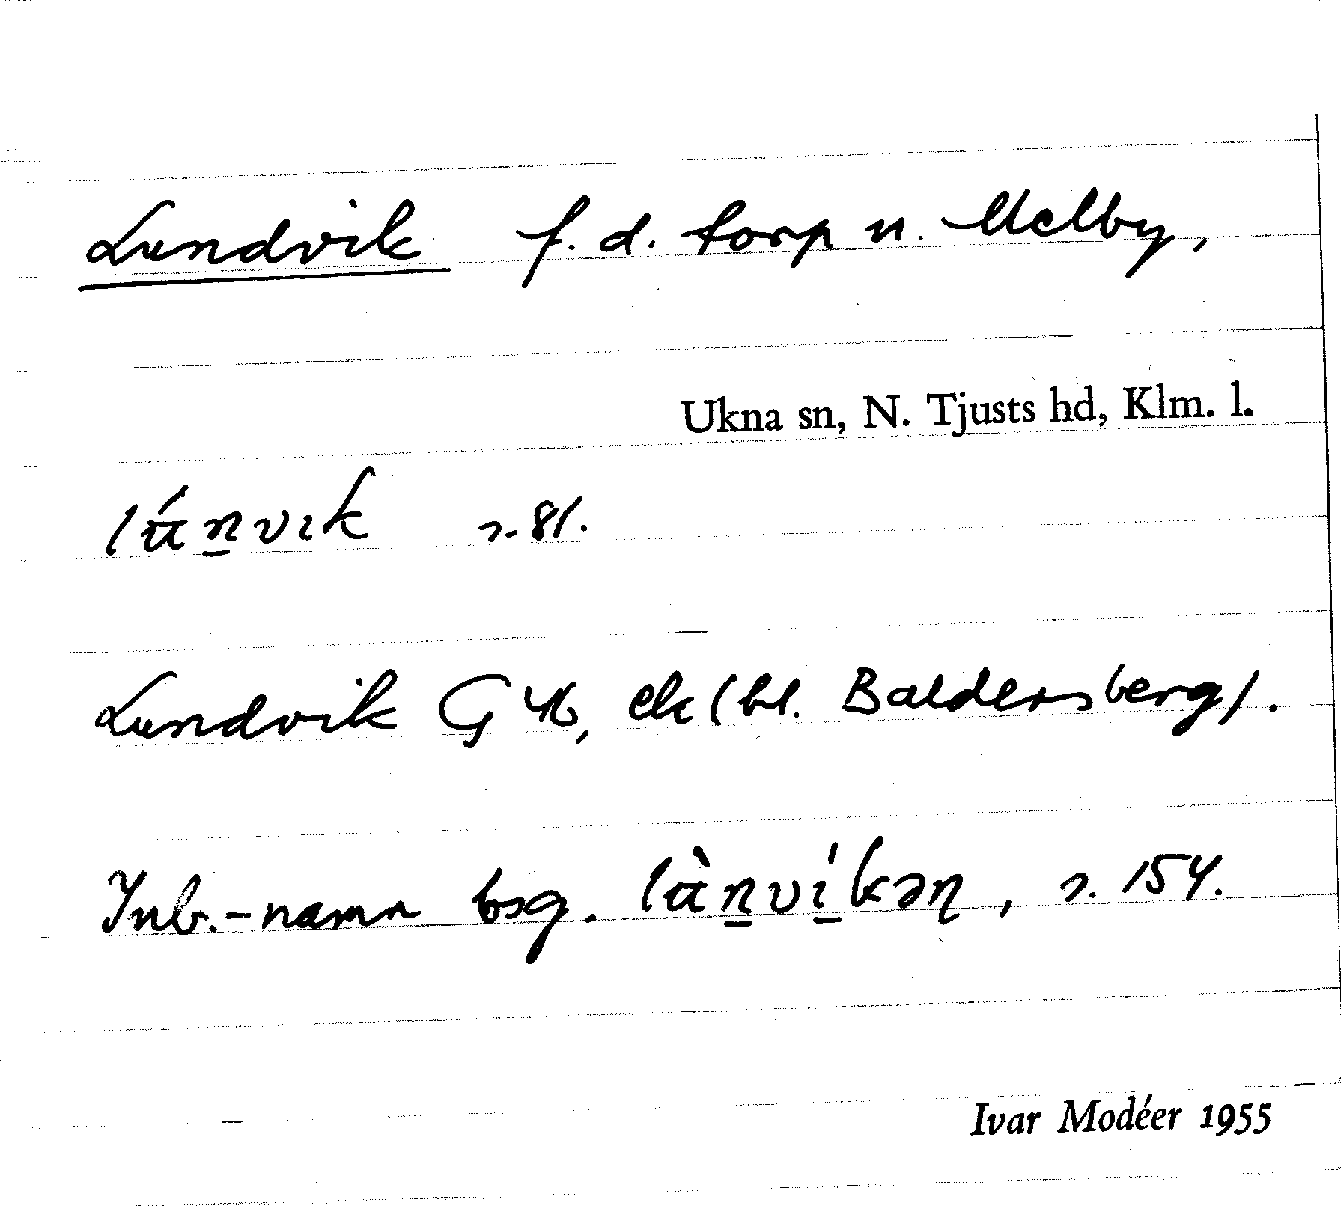 Lundvik f. d. torp u. Melby,
Ukna sn, N. Tjusts hd, Klm. l.
s. 81.
Lundvik G 46, ek (bl. Baldersberg).
Inb.-namn bsg. , s. 154.
Ivar Modéer 1955